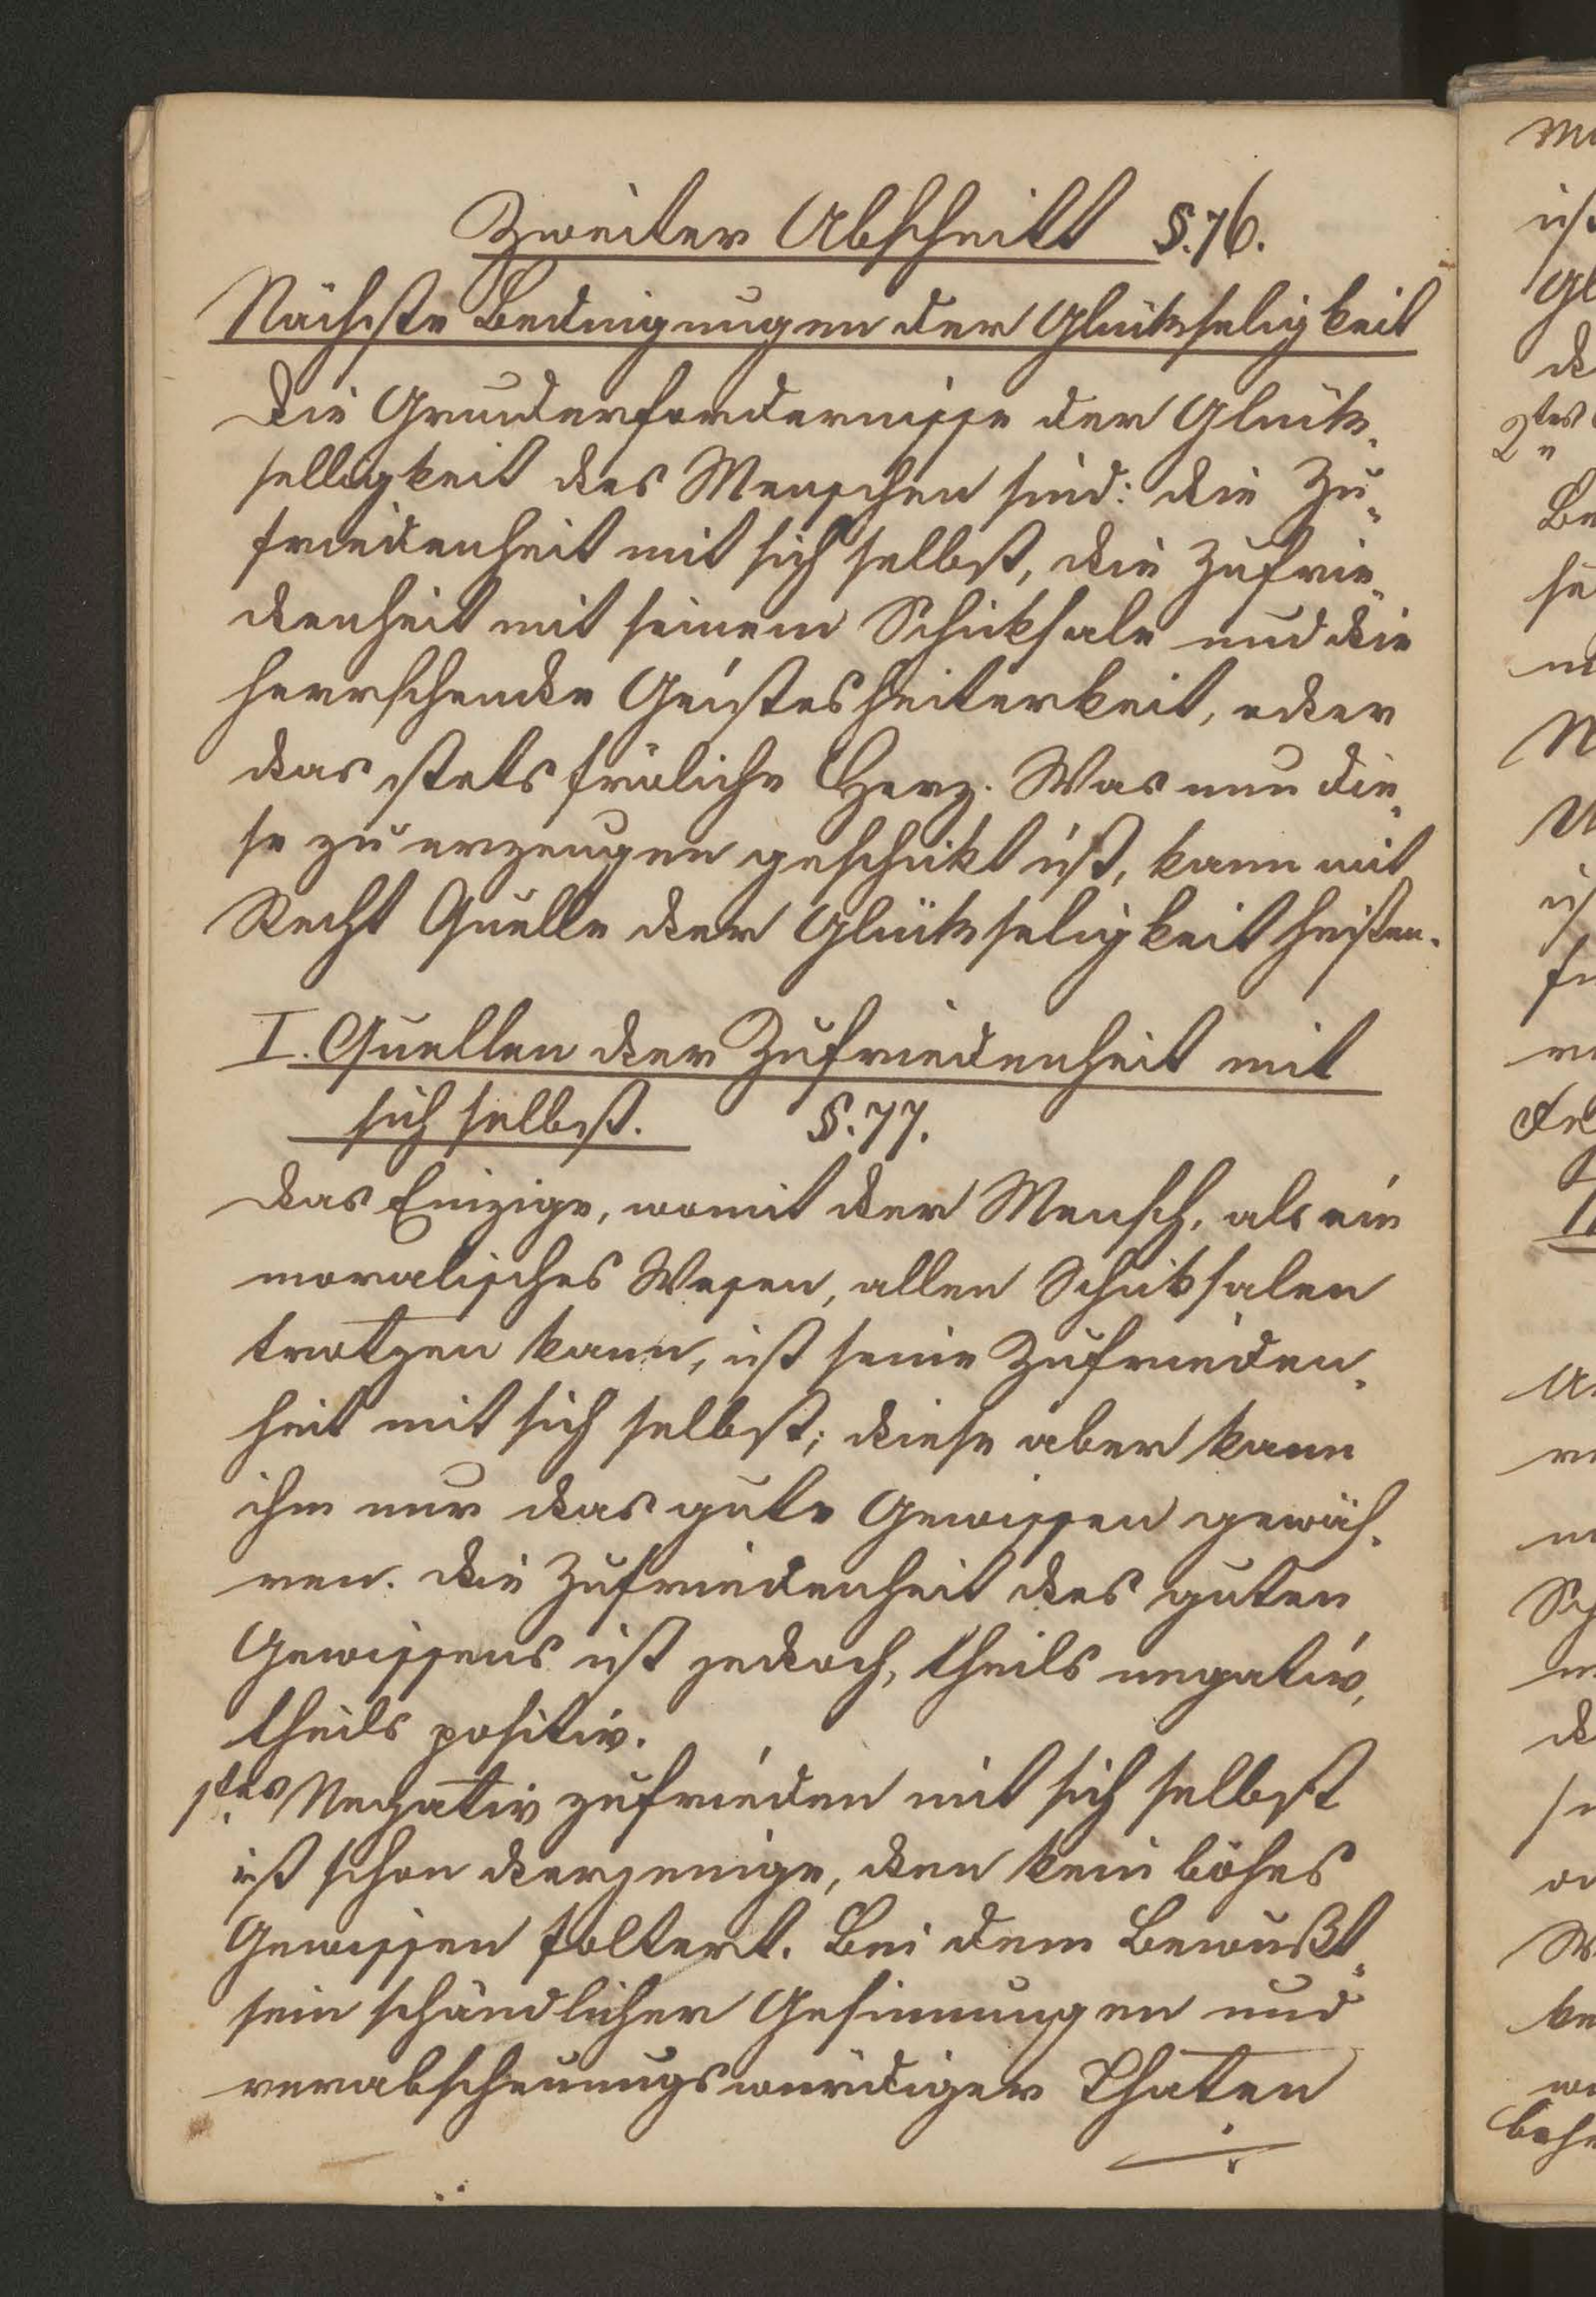 Zweiter Abschnitt §. 76.
Nächste Bedingungen der Glükseligkeit
Die Grunderfordernisse der Glük-
selligkeit des Menschen sind: die Zu-
friedenheit mit sich selbst, die Zufrie-
denheit mit seinem Schiksale und die
herrschende Geistesheiterkeit, oder
das stets fröliche Herz. Was nun die-
se zu erzeugen geschikt ist, kann mit
Recht Quelle der Glükseligkeit heißen.
I. Quellen der Zufriedenheit mit
sich selbst. §. 77.
Das Einzige, womit der Mensch, als ein
moralisches Wesen, allen Schiksalen
trotzen kann, ist seine Zufrieden-
heit mit sich selbst; diese aber kann
ihm nur das gute Gewissen gewäh-
ren. Die Zufriedenheit des guten
Gewissens ist jedoch, theils negativ,
theils positiv.
1tes Negativ zufrieden mit sich selbst
ist schon derjenige, den kein böses
Gewissen foltert. Bei dem Bewußt-
sein schändlicher Gesinnungen und
verabscheuungswürdiger Thaten